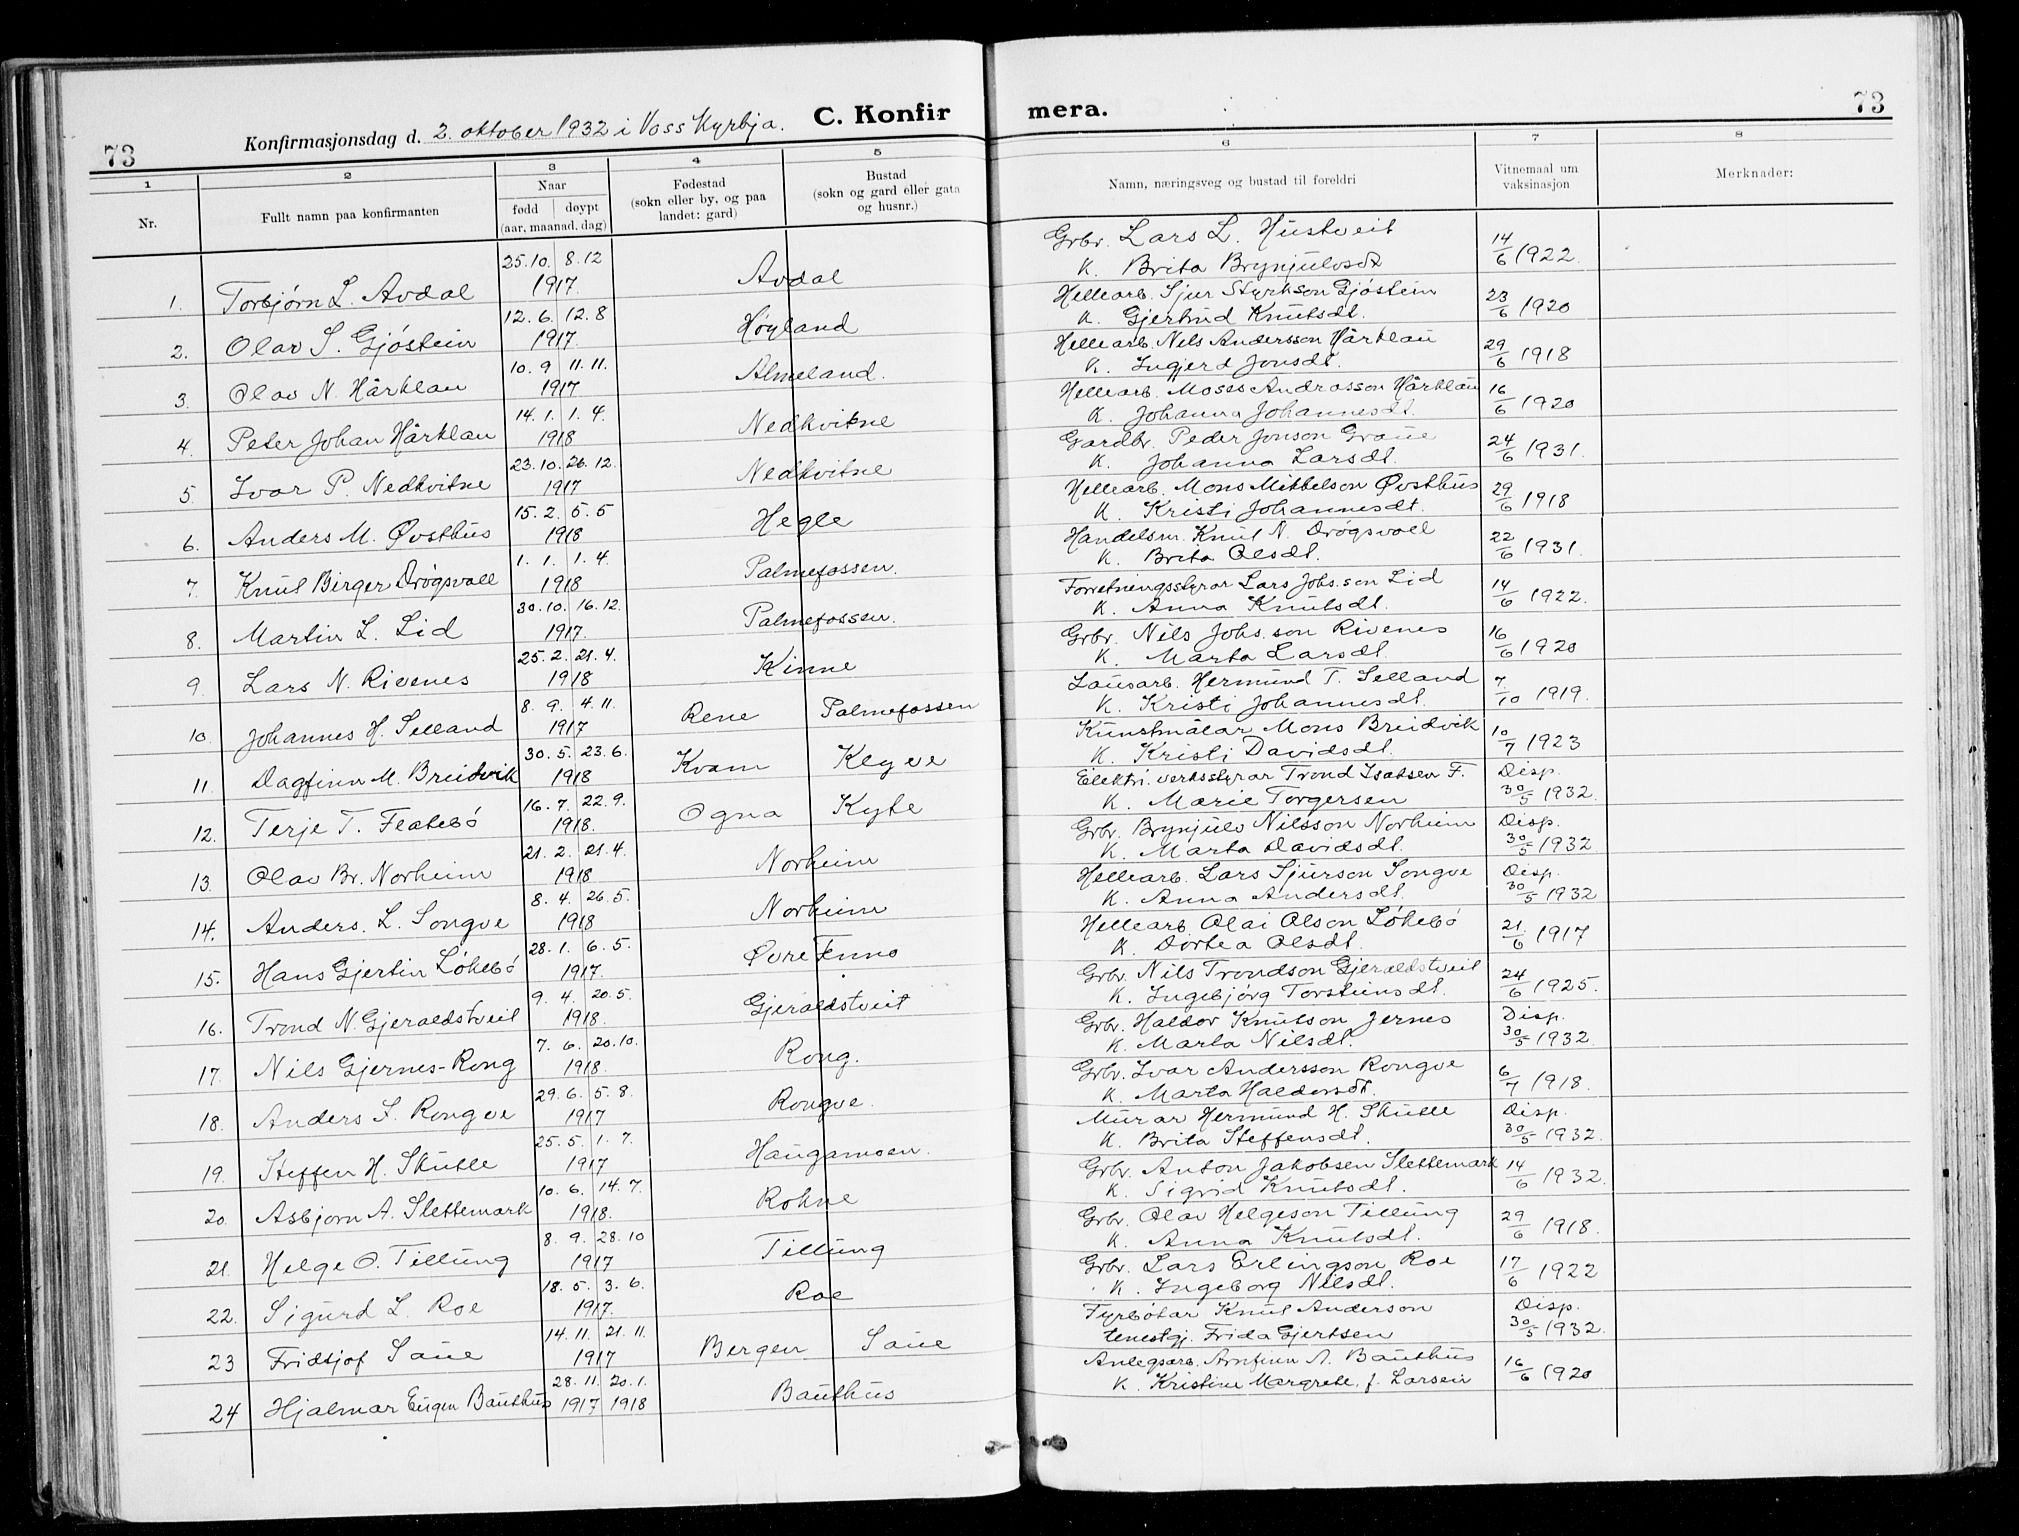 73
Konfirmasjonsdag d. 2. oktober 1932 i Voss Kyrkja.
C. Konfirmera.
73
1 2 3 4 5 6 7 8
Nr.
Fullt namn paa konfirmanten
Naar
født | døypt
(aar, maanad, dag)
Fødestad
(sokn eller by, og paa
landet: gard)
Bustad
(sokn og gard eller gata
og husnr.)
Namn, næringsveg og bustad til foreldri
Vitnemaal um
vaksinasjon
Merknader:
1. Torbjørn L. Avdal 25.10. 8.12 1917. Avdal Grbr. Lars L. Hustveit 14/6 1922.
K. Brita Brynjulvsdt
2. Olav S. Gjøstein 12.6. 12.8 1917. Høyland Hellearb. Sjur Styrkson Gjøstein 23/6 1920
K. Gjertrud Knutsdt.
3. Olav N. Hårklau 10.9 11.11. 1917 Almeland. Hellearb. Nils Andersson Hårklau 29/6 1918
K. Ingjerd Jonsdt.
4. Peter Johan Hårklau 14.1. 1.4. 1918 Nedkvitne Hellearb. Moses Andrasson Hårklau 16/6 1920
K. Johanna Johannesdt.
5. Ivar P. Nedkvitne 23.10. 26.12. 1917 Nedkvitne Gardbr. Peder Jonson Graue 24/6 1931.
K. Johanna Larsdt.
6. Anders M. Øvsthus 15.2. 5.5 1918 Hegle Hellearb. Mons Mikkelson Øvsthus 29/6 1918
K. Kristi Johannesdt.
7. Knut Birger Drøgsvoll 1.1. 1.4. 1918 Palmefossen. Handelsm. Knut N. Drøgsvoll 22/6 1931.
K. Brita Olsdt.
8. Martin L. Lid 30.10. 16.12. 1917. Palmefossen. Forretningsstyrar Lars Johs.son Lid 14/6 1922.
K. Anna Knutsdt.
9. Lars N. Rivenes 25.2. 21.4. 1918 Kinne Grbr. Nils Johs.son Rivenes 16/6 1920
K. Marta Larsdt.
10. Johannes H. Selland 8.9. 4.11. 1917 Rene Palmefossen Lausarb. Hermund T. Selland 7/10 1919.
K. Kristi Johannesdt.
11. Dagfinn M. Breidvik 30.5. 23.6. 1918 Kvam Klyve Kunstmålar Mons Breidvik 10/7 1923
K. Kristi Davidsdt.
12. Terje T. Flatebø 16.7. 22.9. 1918. Ogna Kyte Elektri. verksstyrar Trond Isaksen F. Disp. 30/5 1932.
K. Marie Torgersen
13. Olav Br. Norheim 21.2. 21.4. 1918 Norheim Grbr. Brynjulv Nilsson Norheim Disp. 30/5 1932.
K. Marta Davidsdt.
14. Anders. L. Songve 8.4. 26.5. 1918 Norheim Hellearb. Lars Sjurson Songve Disp. 30/5 1932
K. Anna Andersdt.
15. Hans Gjertin Løkebø 28.1. 6.5. 1917. Øvre Finno Hellearb. Olai Olson Løkebø 21/6 1917
K. Dortea Olsdt.
16. Trond N. Gjeraldstveit 9.4. 20.5. 1918. Gjeraldstveit Grbr. Nils Trondson Gjeraldstveit 24/6 1925.
K. Ingebjørg Torsteinsdt.
17. Nils Gjernes-Rong 7.6. 20.10. 1918. Rong. Grbr. Haldor Knutson Jernes Disp. 30/5 1932.
K. Marta Nilsdt.
18. Anders I. Rongve 29.6. 5.8. 1917 Rongve. Grbr. Ivar Andersson Rongve 6/7 1918.
K. Marta Haldorsdt.
19. Steffen H. Skutle 25.5. 1.7. 1917 Haugamoen. Murar Hermund H. Skutle Disp. 30/5 1932.
K. Brita Steffensdt.
20. Asbjørn A. Slettemark 10.6. 14.7. 1918. Rokne Grbr. Anton Jakobsen Slettemark 14/6 1932.
K. Sigrid Knutsdt.
21. Helge O. Tillung 8.9. 28.10 1917 Tillung Grbr. Olav Helgeson Tillung 29/6 1918.
K. Anna Knutsdt.
22. Sigurd L. Roe 18.5. 3.6. 1917. Roe Grbr. Lars Erlingson Roe 17/6 1922
K. Ingeborg Nilsdt.
23 Fridtjof Saue 14.11. 21.11. 1917 Bergen Saue Fyrbøtar Knut Anderson Disp. 30/5 1932.
tenestgj. Frida Gjertsen
24 Hjalmar Eugen Bauthus 28.11. 20.1. 1917 1918 Bauthus Anlegsarb. Arnfinn A. Bauthus 16/6 1920
K. Kristine Margrete f. Larsen